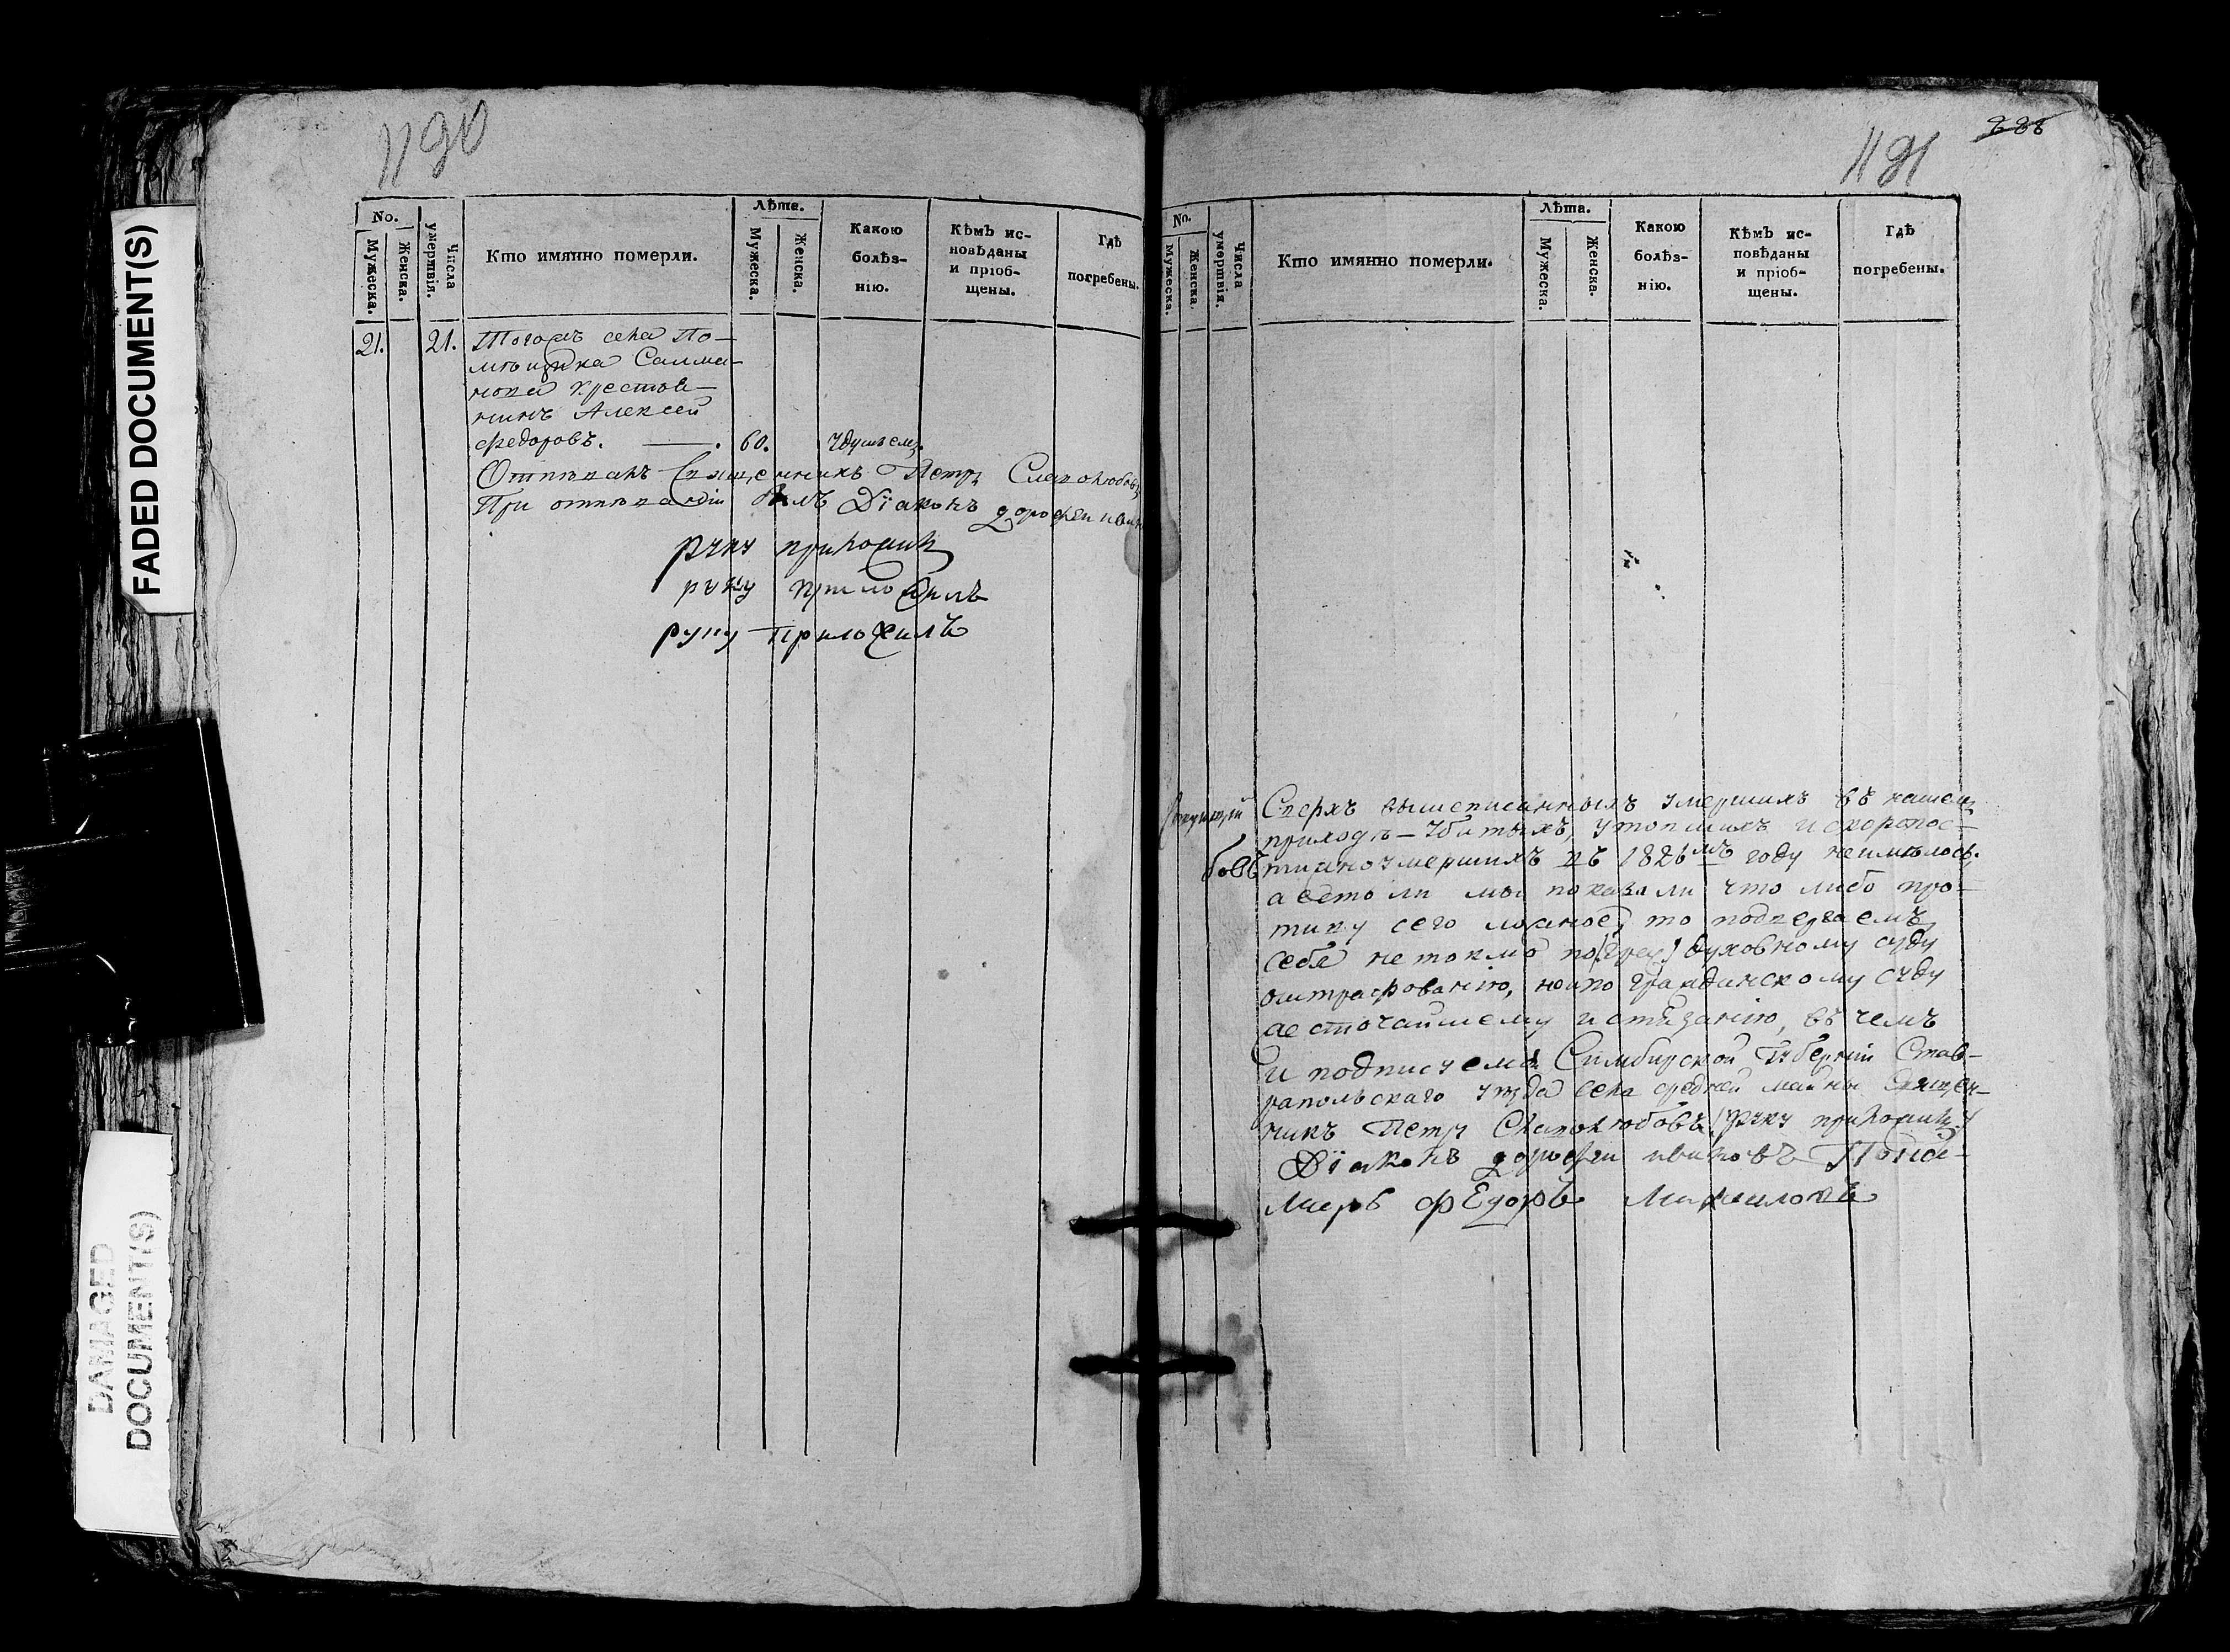 FADED DOCUMENT(S)
DAMAGED DOCUMENT(S)
1190
No.
Мужеска.
Женска.
Числа умертвія.
Кто имянно померли.
Лѣта.
Мужеска.
Женска.
Какою болѣзнію.
Кѣмъ исповѣданы и пріобщены.
Гдѣ погребены.
21. 21. Тогожъ села По-
мѣщика Салма-
нова крестья-
нинъ Алексей
федоровъ. 60. удушьемъ.
Отпѣвалъ Священникъ Петръ
При отпѣваніи былъ Дїаконъ дорофеи
руку приложилъ
руку приложилъ
руку приложилъ
888
1191
No.
Мужеска.
Женска.
Числа умертвія.
Кто имянно померли.
Лѣта.
Мужеска.
Женска.
Какою болѣзнію.
Кѣмъ исповѣданы и пріобщены.
Гдѣ погребены.
Сверхъ вышеписанныхъ умершихъ въ нашемъ
приходѣ – убитыхъ, утопшихъ и скоропос-
тижно умершихъ въ 1826мъ году неимѣлось.
а ежели мы показали что либо про-
тиву сего ложное, то подвергаемъ
себя не токмо по духовному суду
оштрафованію, но и по гражданскому суду
жесточайшему истязанію, въ чемъ
и подписуемся Симбирской Губерніи Став-
рапольскаго уѣзда села средней майны Священ-
никъ Петръ Славолюбовъ руку приложилъ
Дїаконъ дорофеи ивановъ Поно-
марь фЕдоръ Михаиловъ